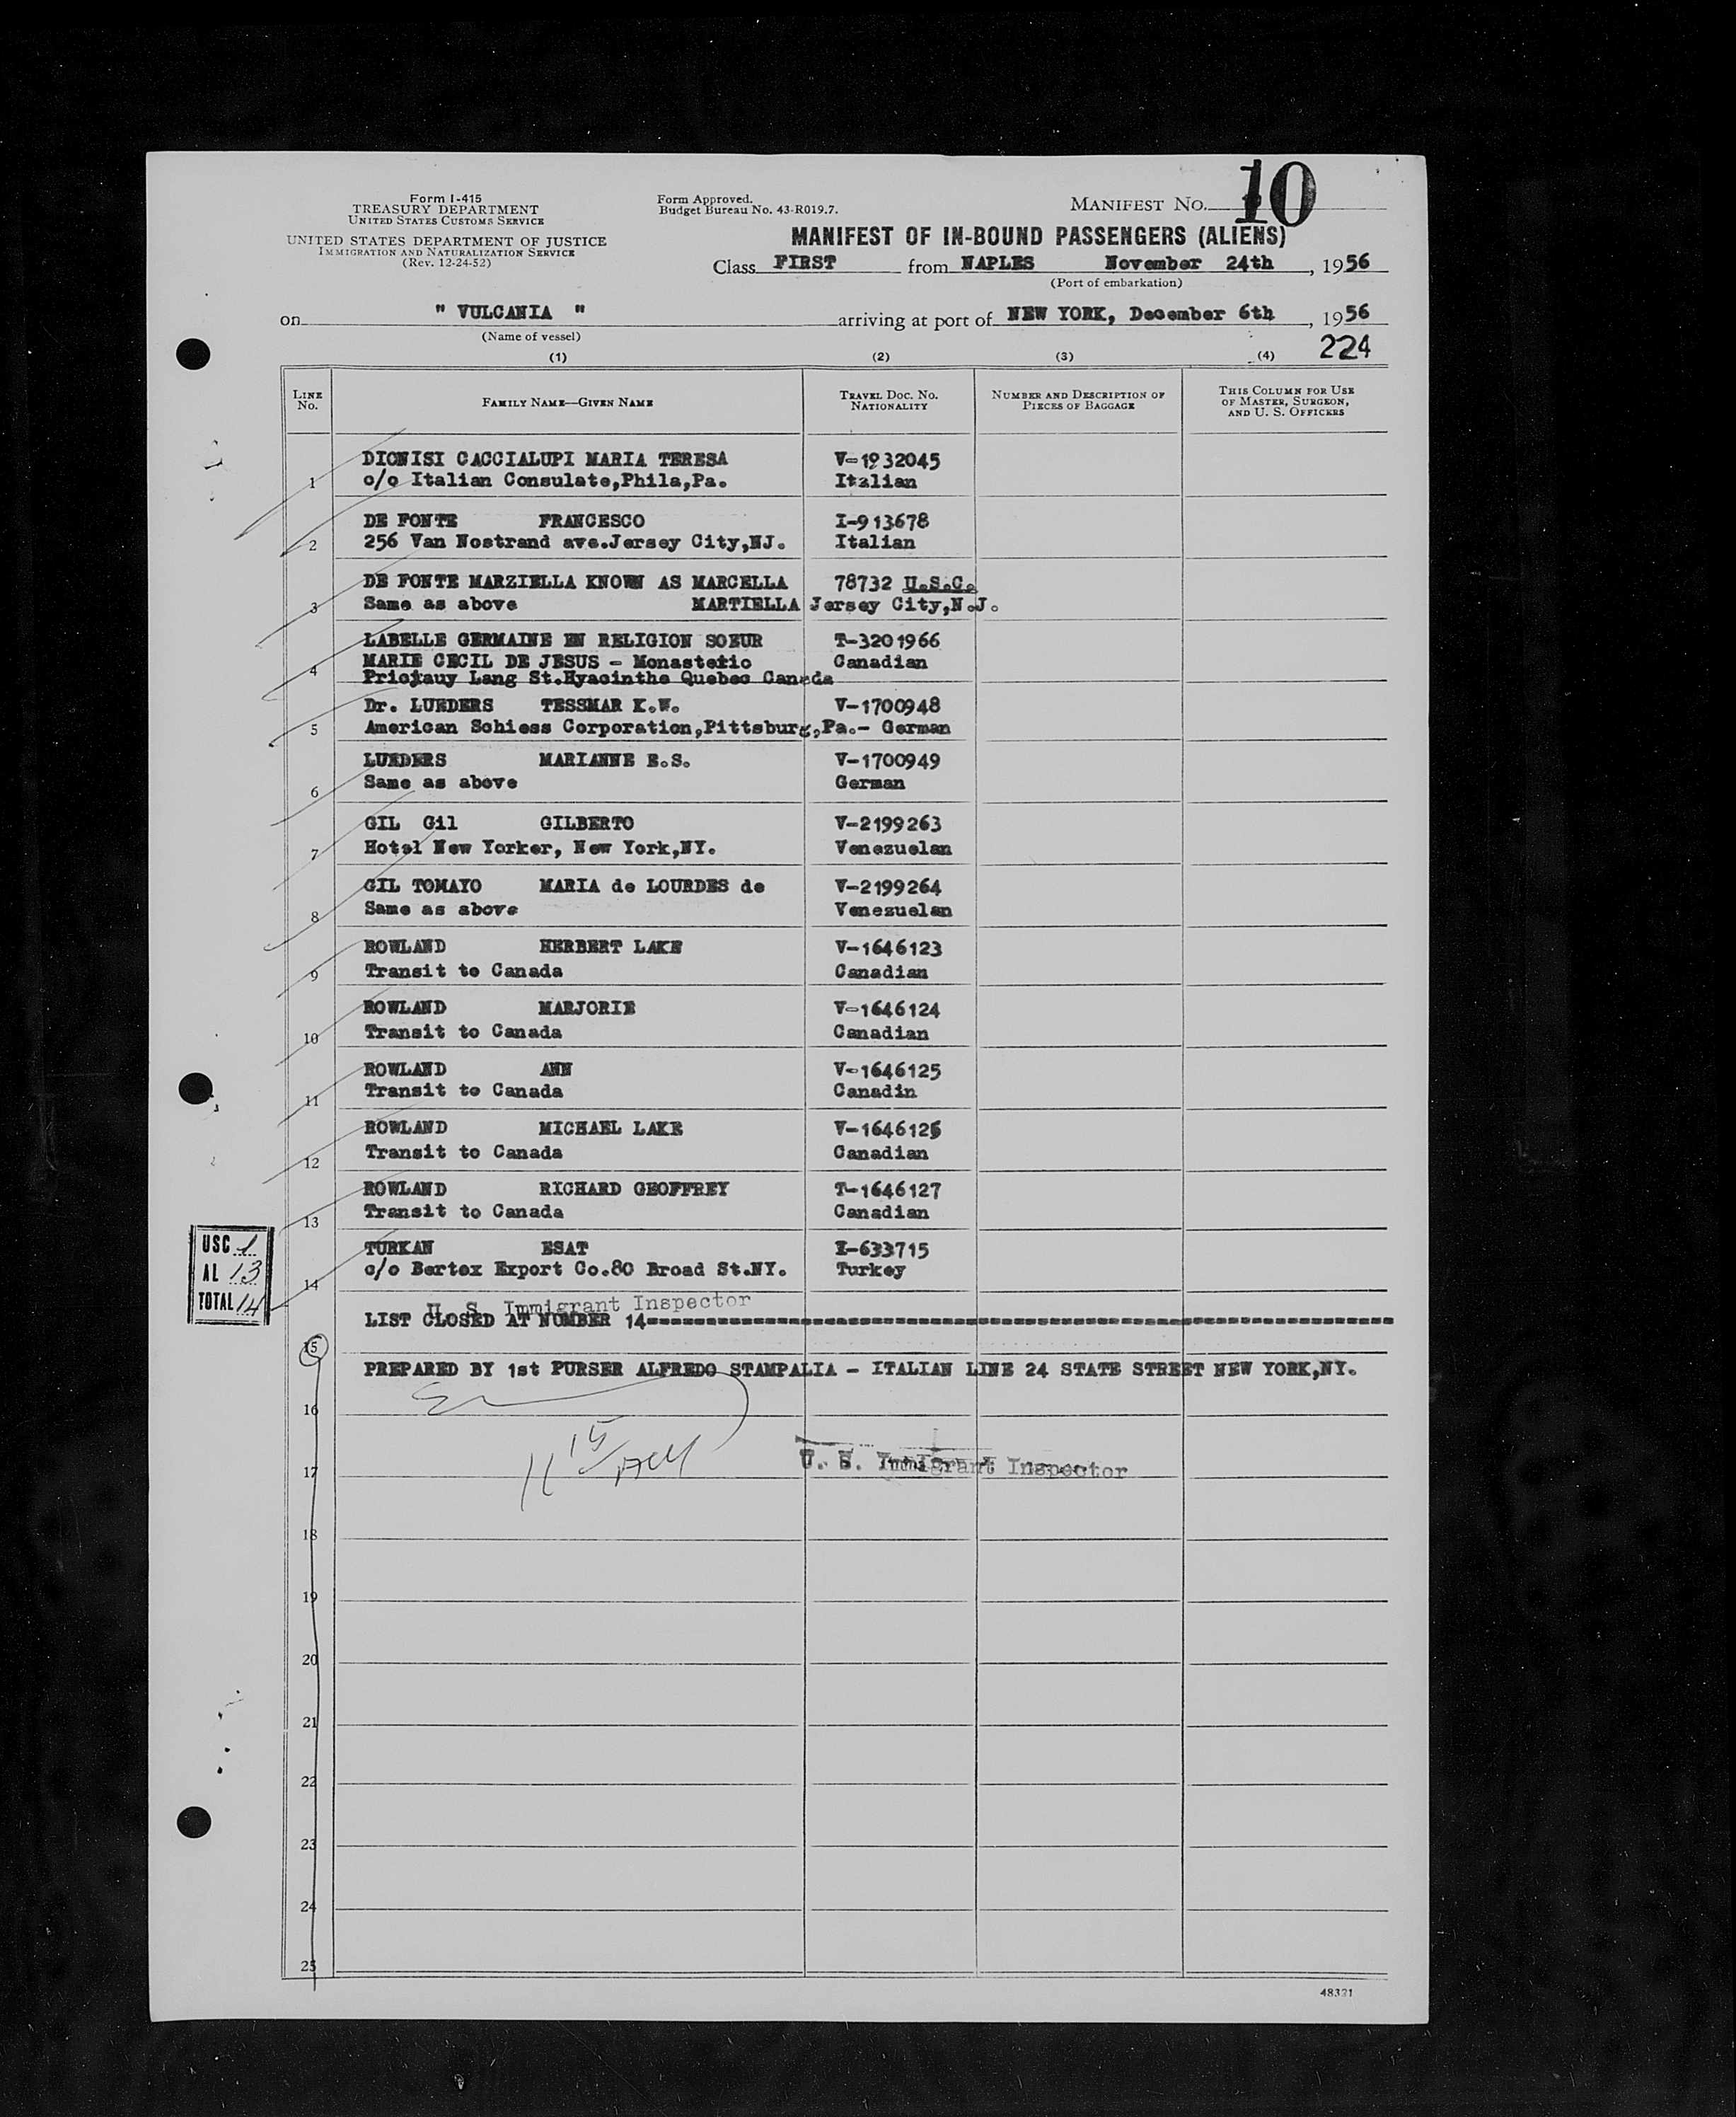 Form I-415
TREASURY DEPARTMENT
UNITED STATES CUSTOMS SERVICE
UNITED STATES DEPARTMENT OF JUSTICE
IMMIGRATION AND NATURALIZATION SERVICE
(Rev. 12-24-52)
Form Approved.
Budget Bureau No. 43-R019.7.
MANIFEST NO. 10
MANIFEST OF IN-BOUND PASSENGERS (ALIENS)
Class FIRST from NAPLES November 24th, 1956
(Port of embarkation)
on " VULCANIA " arriving at port of NEW YORK, December 6th, 1956
(Name of vessel)
224
(1) (2) (3) (4)
LINE NO. FAMILY NAME—GIVEN NAME TRAVEL DOC. NO. NATIONALITY NUMBER AND DESCRIPTION OF PIECES OF BAGGAGE THIS COLUMN FOR USE OF MASTER, SURGEON, AND U. S. OFFICERS
DIONISI CACCIALUPI MARIA TERESA V-1932045
1 c/o Italian Consulate,Phila,Pa. Italian
DE FONTE FRANCESCO I-913678
2 256 Van Nostrand ave.Jersey City,NJ. Italian
DE FONTE MARZIELLA KNOWN AS MARCELLA 78732 U.S.C.
3 Same as above MARTIELLA Jersey City,N.J.
LABELLE GERMAINE EN RELIGION SOEUR T-3201966
4 MARIE CECIL DE JESUS - Monasterio Canadian
Lang St.Hyacinthe Quebec Canada
Dr. LUEDERS TESSMAR K.W. V-1700948
5 American Schiess Corporation,Pittsburg,Pa.- German
LUEDERS MARIANNE E.S. V-1700949
6 Same as above German
GIL Gil GILBERTO V-2199263
7 Hotel New Yorker, New York,NY. Venezuelan
GIL TOMAYO MARIA de LOURDES de V-2199264
8 Same as above Venezuelan
ROWLAND HERBERT LAKE V-1646123
9 Transit to Canada Canadian
ROWLAND MARJORIE V-1646124
10 Transit to Canada Canadian
ROWLAND ANN V-1646125
11 Transit to Canada Canadin
ROWLAND MICHAEL LAKE V-1646126
12 Transit to Canada Canadian
ROWLAND RICHARD GEOFFREY T-1646127
13 Transit to Canada Canadian
TURKAN ESAT I-633715
14 c/o Bertex Export Co.80 Broad St.NY. Turkey
USC 1
AL 13
TOTAL 14
U. S. Immigrant Inspector
LIST CLOSED AT NUMBER 14
15
PREPARED BY 1st PURSER ALFREDO STAMPALIA - ITALIAN LINE 24 STATE STREET NEW YORK,NY.
16
11 15 AM
U. S. Immigrant Inspector
17
18
19
20
21
22
23
24
25
48321